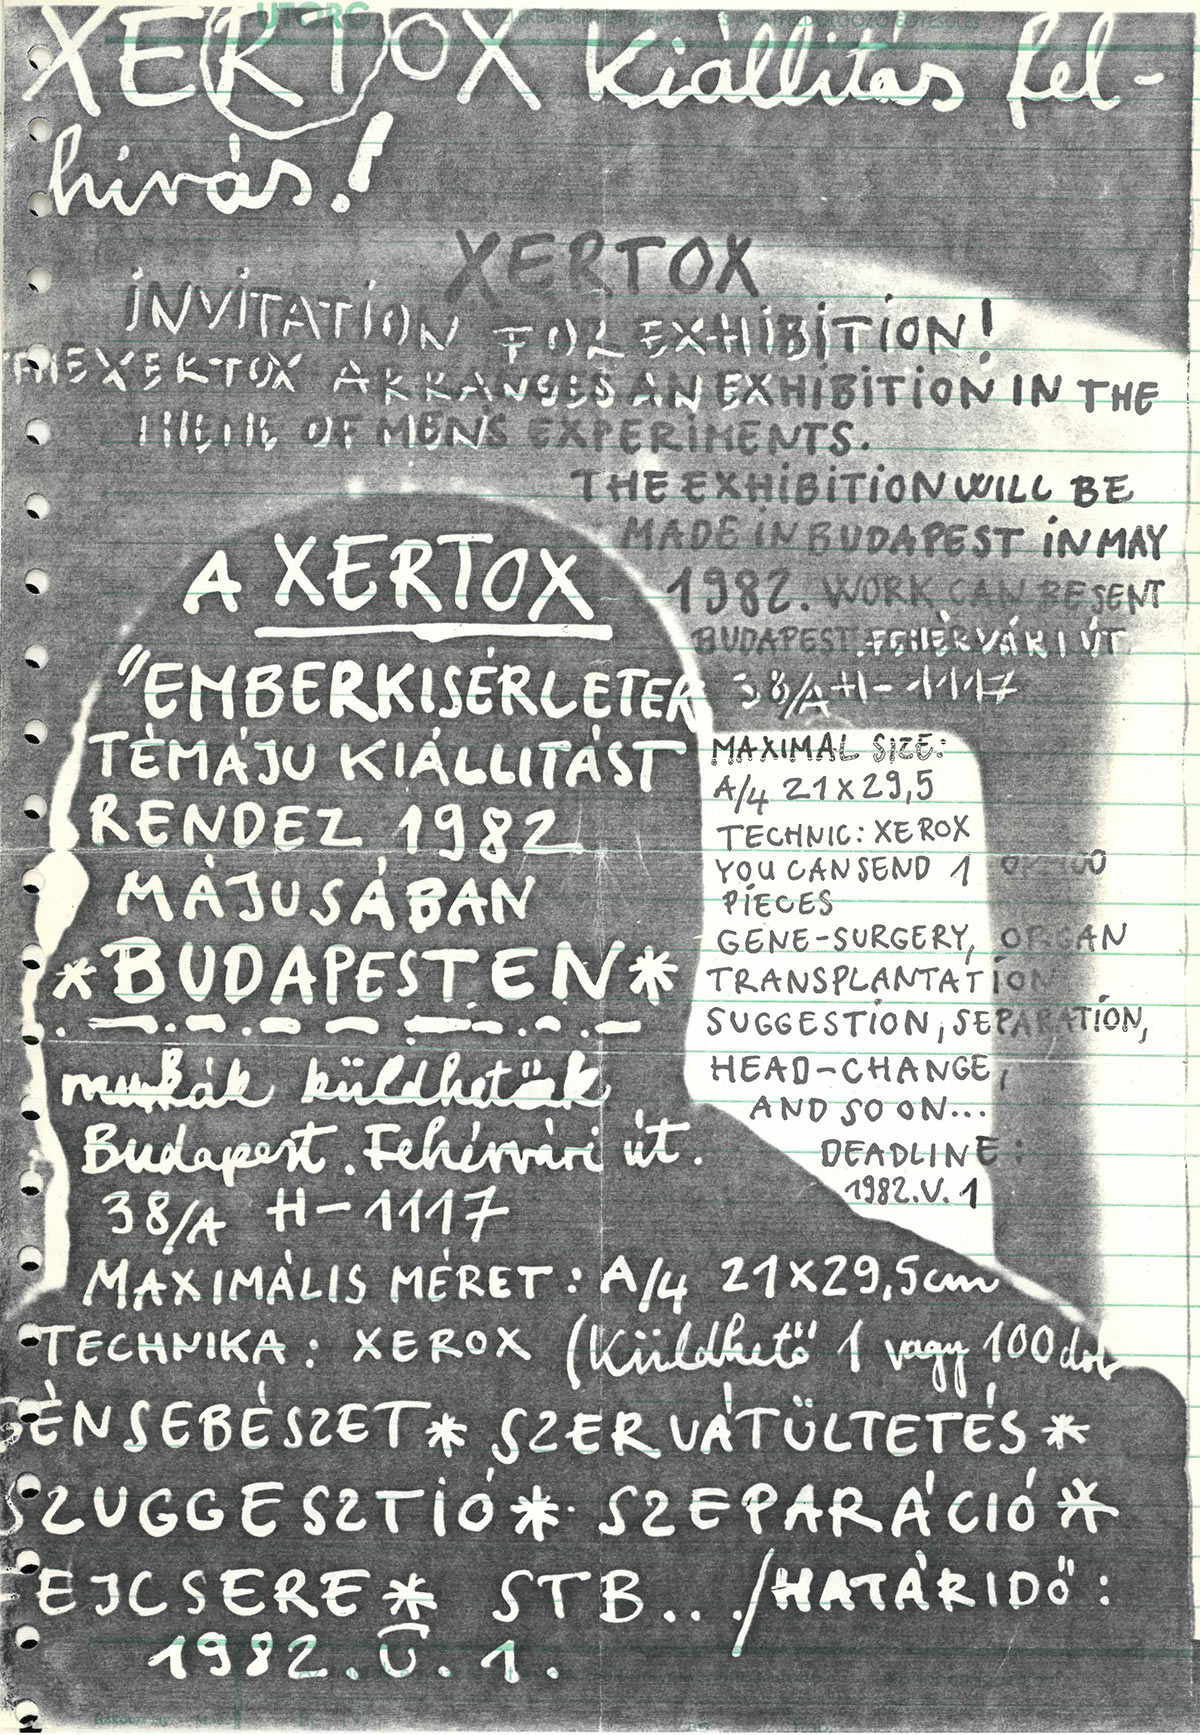 XE(RT)OX kiállitás fel-
hívás!
XERTOX
INVITATION FOR EXHIBITION!
THE XERTOX ARRANGES AN EXHIBITION IN THE
THEME OF MEN'S EXPERIMENTS.
THE EXHIBITION WILL BE
MADE IN BUDAPEST IN MAY
1982. WORK CAN BE SENT
BUDAPEST. FEHÉRVÁRI ÚT.
38/A H-1117
MAXIMAL SIZE:
A/4 21x29,5
TECHNIC: XEROX
YOU CAN SEND 1 OR 100
PIECES
GENE-SURGERY, ORGAN
TRANSPLANTATION
SUGGESTION, SEPARATION,
HEAD-CHANGE,
AND SO ON...
DEADLINE:
1982.V.1
A XERTOX
"EMBERKISÉRLETEK
TÉMÁJU KIÁLLITÁST
RENDEZ 1982
MÁJUSÁBAN
*BUDAPESTEN*
munkák küldhetők
Budapest. Fehérvári út.
38/A H-1117
MAXIMÁLIS MÉRET: A/4 21x29,5cm
TECHNIKA: XEROX (Küldhető 1 vagy 100 db
GÉNSEBÉSZET* SZERVÁTÜLTETÉS*
SZUGGESZTIÓ* SZEPARÁCIÓ*
FEJCSERE* STB.../HATÁRIDŐ:
1982.V.1.